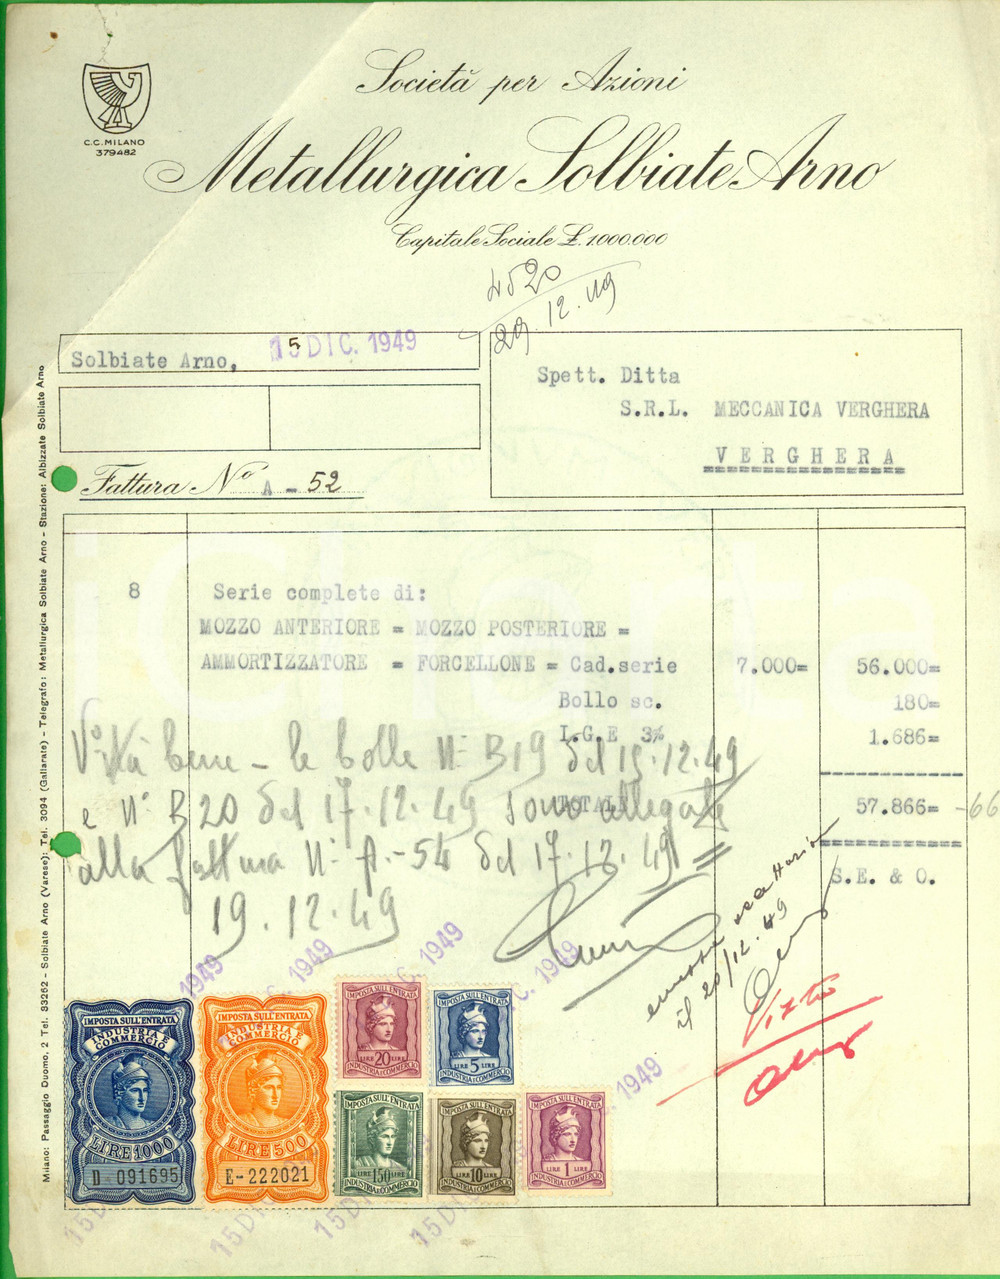 C.C. MILANO
379482
Società per Azioni
Metallurgica Solbiate Arno
Capitale Sociale £. 1.000.000
4520
29.12.49
Solbiate Arno, 15 DIC. 1949
Spett. Ditta
S.R.L. MECCANICA VERGHERA
VERGHERA
Fattura No A - 52
8 Serie complete di:
MOZZO ANTERIORE = MOZZO POSTERIORE =
AMMORTIZZATORE = FORCELLONE = Cad.serie 7.000= 56.000=
Bollo sc. 180=
I.G.E 3% 1.686=
TOTALE 57.866= -66
S.E. & O.
Va bene - le bolle N° B19 del 15.12.49
e N° B20 del 17.12.49 sono allegate
alla fattura N° A-54 del 17.12.49 =
19.12.49
il 20/12.49
Visto
1949
C. 1949
C. 1949
C. 1949
1949
IMPOSTA SULL'ENTRATA
INDUSTRIA E COMMERCIO
LIRE 1000
D - 091695
IMPOSTA SULL'ENTRATA
INDUSTRIA E COMMERCIO
LIRE 500
E - 222021
IMPOSTA SULL'ENTRATA
LIRE 20 LIRE
INDUSTRIA E COMMERCIO
IMPOSTA SULL'ENTRATA
LIRE 5 LIRE
INDUSTRIA E COMMERCIO
IMPOSTA SULL'ENTRATA
LIRE 150 LIRE
INDUSTRIA E COMMERCIO
IMPOSTA SULL'ENTRATA
LIRE 10 LIRE
INDUSTRIA E COMMERCIO
IMPOSTA SULL'ENTRATA
LIRE 1 LIRE
INDUSTRIA E COMMERCIO
15 D
15 DI
15 DI
15 DI
Milano: Passaggio Duomo, 2 Tel. 83262 - Solbiate Arno (Varese): Tel. 3094 (Gallarate) - Telegrafo: Metallurgica Solbiate Arno - Stazione: Albizzate Solbiate Arno
iCharta